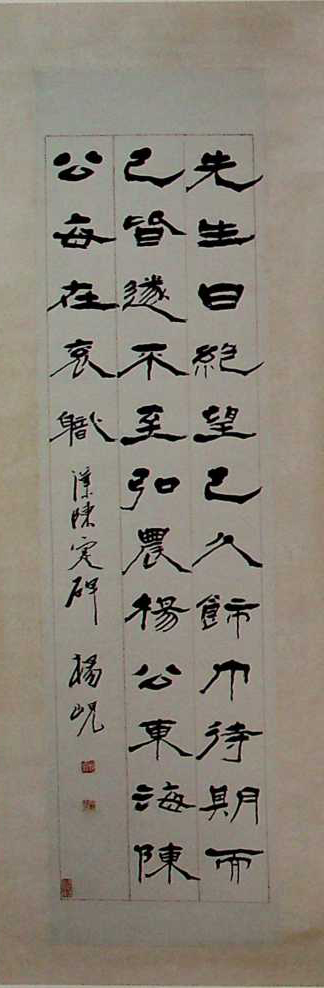 先生曰絶望已久飾巾待期而
已皆遂不至弘農楊公東海陳
公每在衮職 漢陳寔碑 楊峴